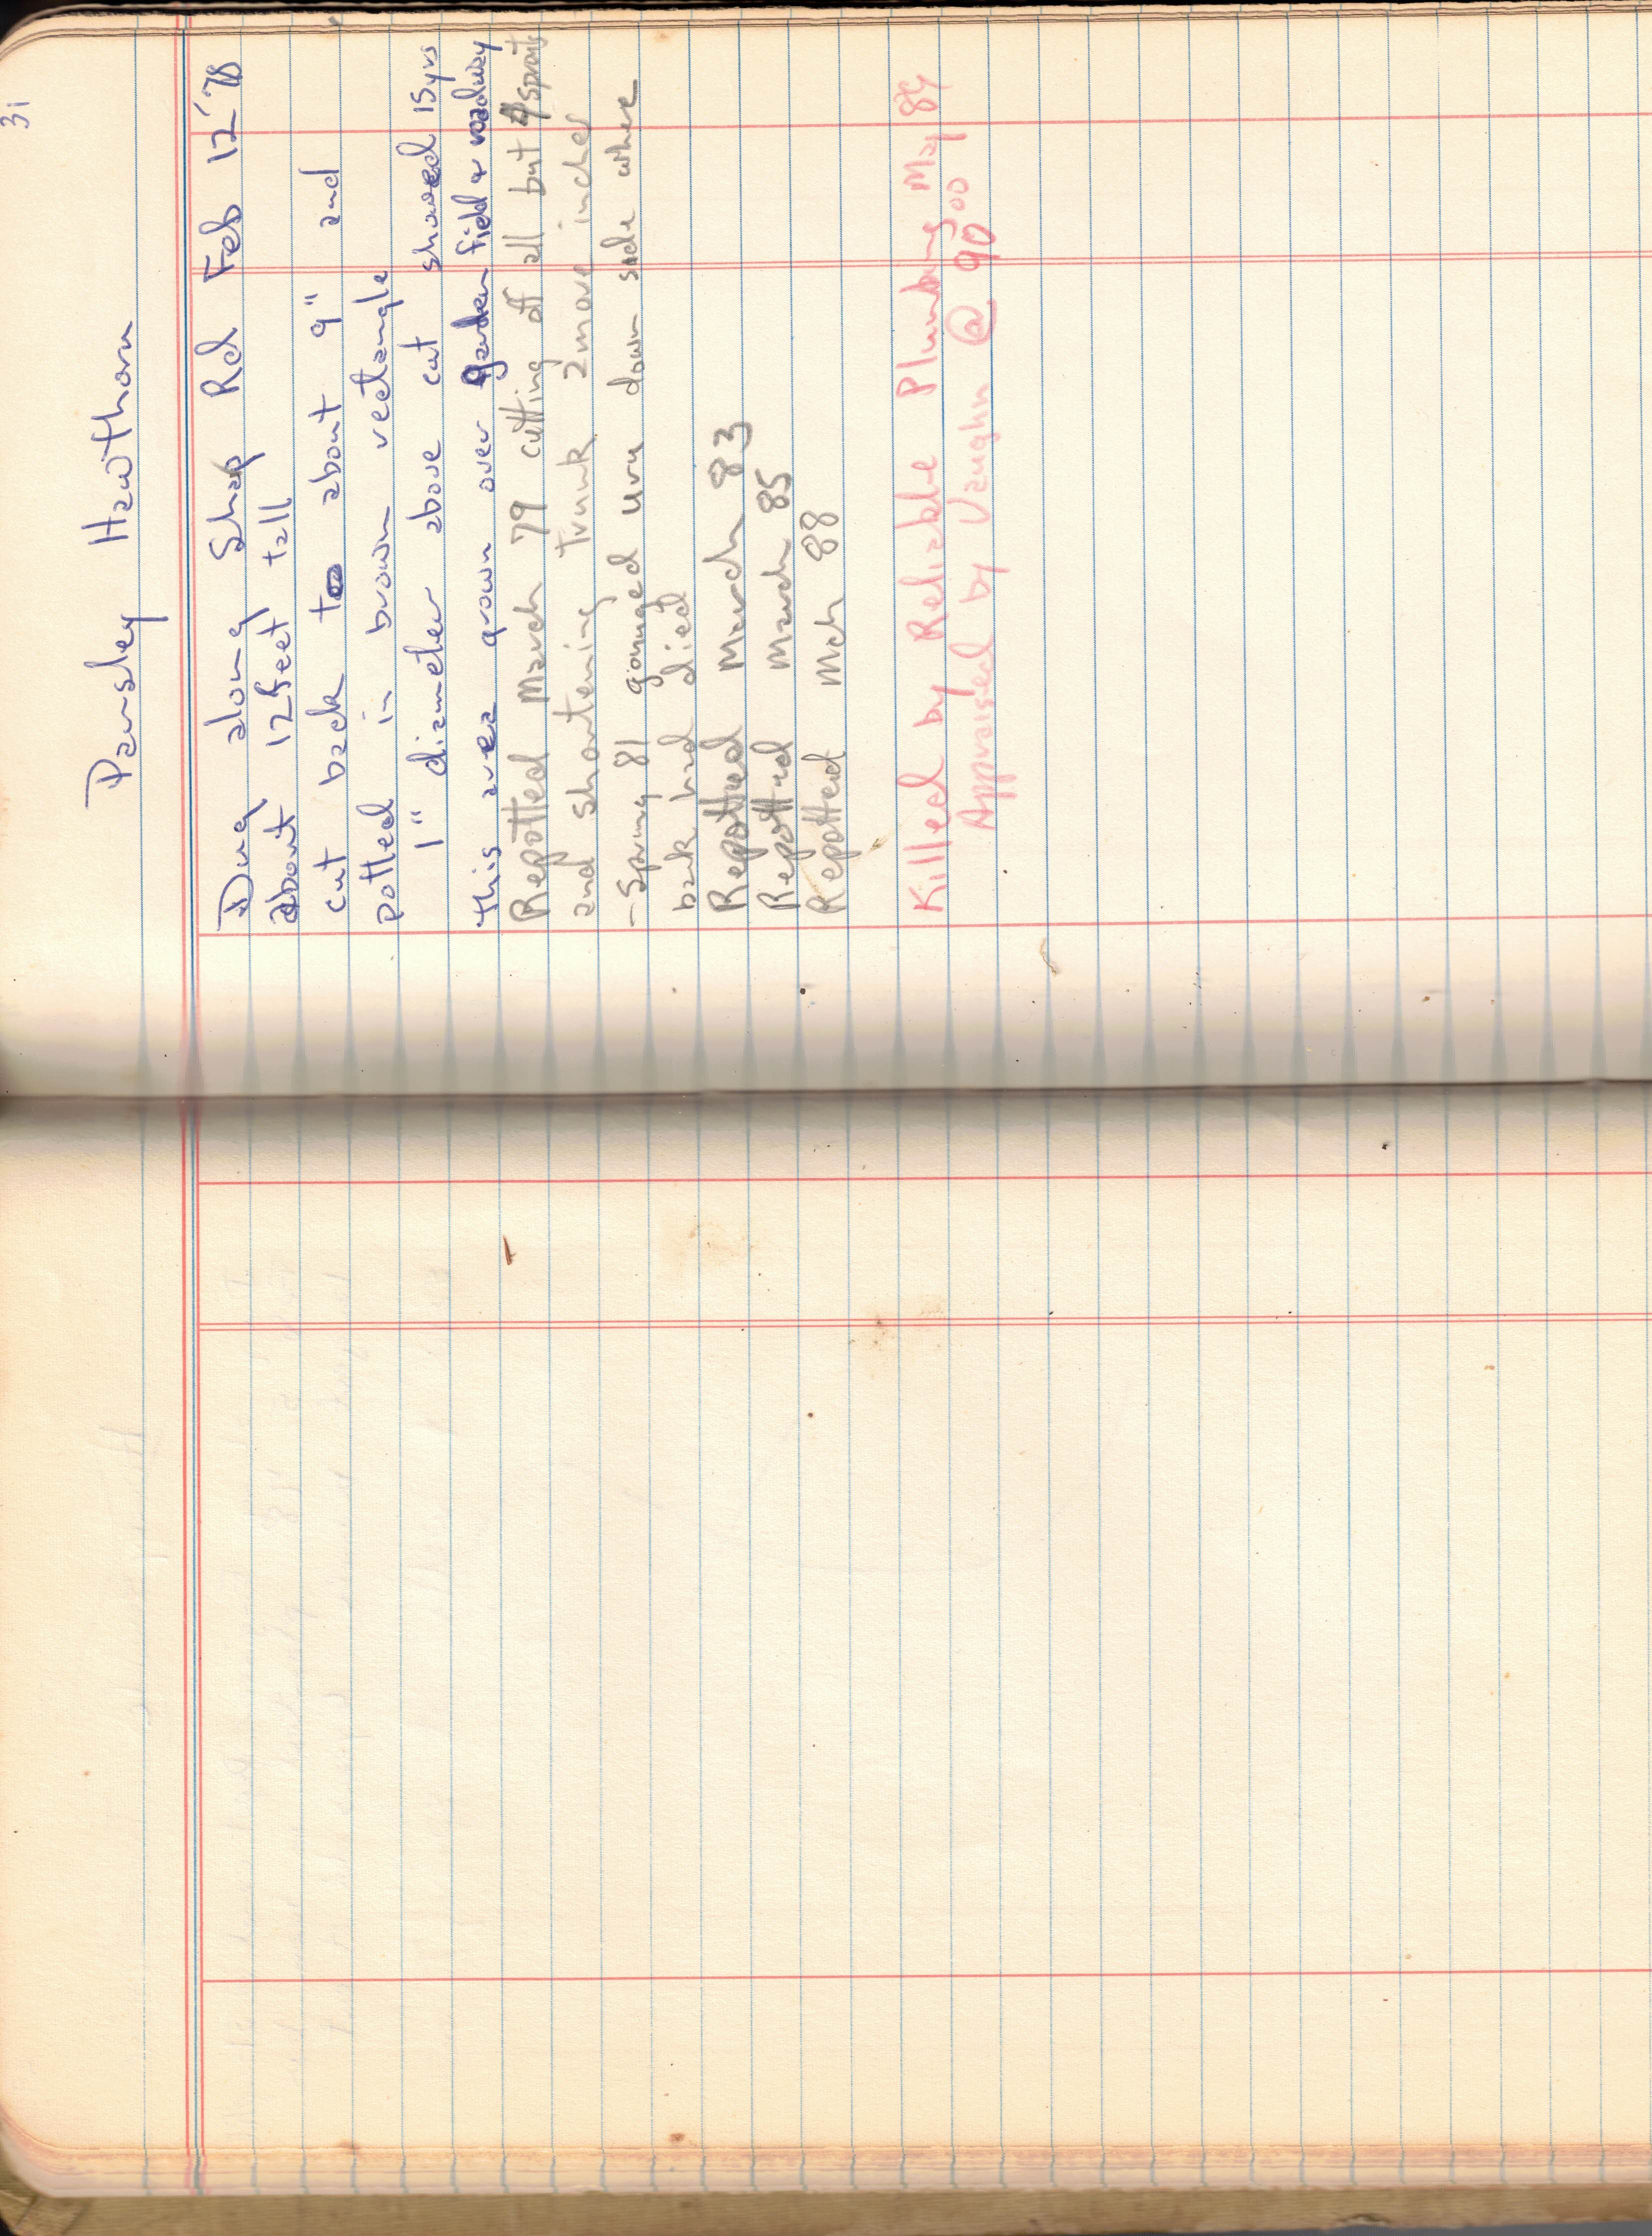 31
Parsley Hawthorn
Dug along Shop Rd Feb 12 '78
about 12 feet tall
cut back to about 9" and
potted in brown rectangle
1" diameter above cut showed 15 yrs
this area grown over garden field & roadway
Repotted March 79 cutting off all but 4 sprouts
and shortening trunk 2 more inches
- Spring 81 gouuged uru down side where
bark had died
Repotted March 83
Repotted March 85
Repotted Mch 88
Killed by Reliable Plumbing May 89
Appraised by Vaughn @ 90 00